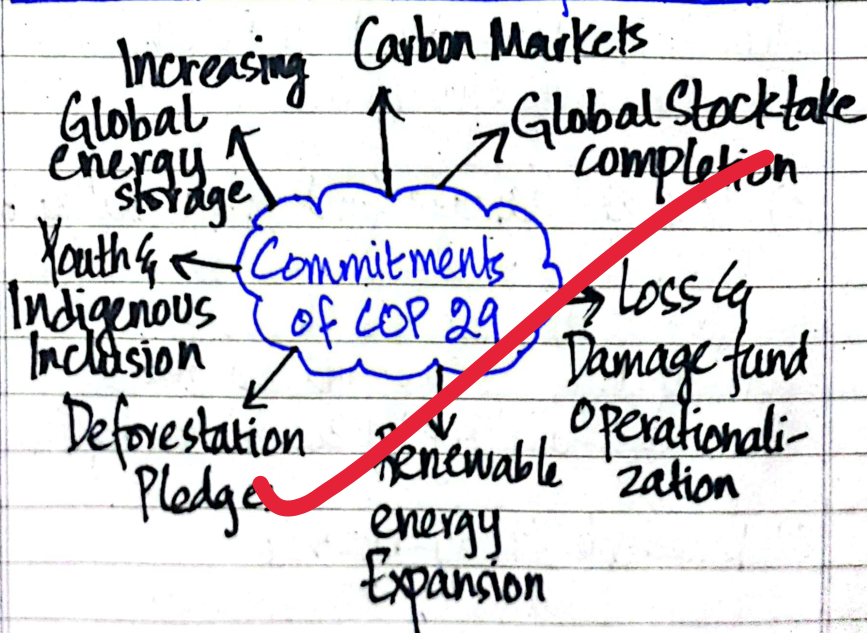 Carbon Markets
Increasing
Global
energy
storage
Global Stocktake
completion
Youth &
Indigenous
Inclusion
Commitments
of COP 29
Loss &
Damage fund
Operationali-
zation
Deforestation
Pledge
Renewable
energy
Expansion